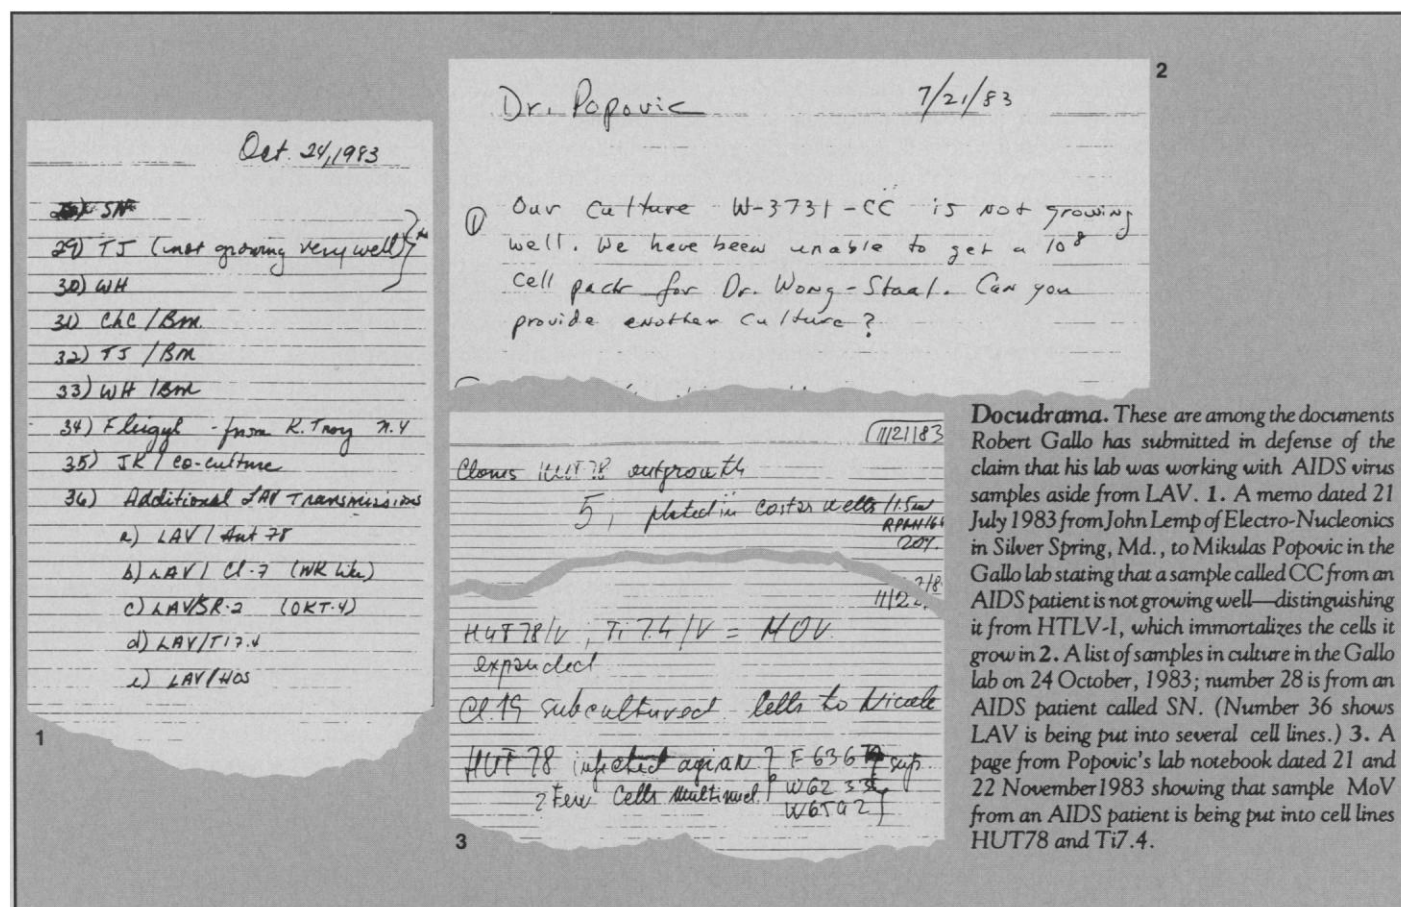 Oct. 24, 1983
28) SN
29) TJ (not growing very well)
30) WH
31) ChC / Bm.
32) TJ / BM
33) WH / Bm
34) Fleigyl - from K. Troy N.Y
35) JK / co-culture
36) Additional LAV Transmissions
a) LAV / Hut 78
b) LAV / Cl-7 (WK like)
c) LAV/SR-2 (OKT-4)
d) LAV/Ti7.4
e) LAV/HOS
1
2
Dr. Popovic 7/21/83
① Our culture W-3731-CC is not growing
well. We have been unable to get a 10⁸
cell pack for Dr. Wong-Staal. Can you
provide another culture?
11/21/83
Clones HUT 78 outgrowth
5, plated in costar wells / 1.5ml
20%
11/22/8
HUT 78/V, Ti 7.4/V = MOV
expanded
Cl. 19 subcultured. Cells to Nicole
HUT 78 infected again F 6367 sup.
? Few Cells multinucl. W62 33
W6592
3
Docudrama. These are among the documents
Robert Gallo has submitted in defense of the
claim that his lab was working with AIDS virus
samples aside from LAV. 1. A memo dated 21
July 1983 from John Lemp of Electro-Nucleonics
in Silver Spring, Md., to Mikulas Popovic in the
Gallo lab stating that a sample called CC from an
AIDS patient is not growing well—distinguishing
it from HTLV-I, which immortalizes the cells it
grow in 2. A list of samples in culture in the Gallo
lab on 24 October, 1983; number 28 is from an
AIDS patient called SN. (Number 36 shows
LAV is being put into several cell lines.) 3. A
page from Popovic's lab notebook dated 21 and
22 November 1983 showing that sample MoV
from an AIDS patient is being put into cell lines
HUT78 and Ti7.4.